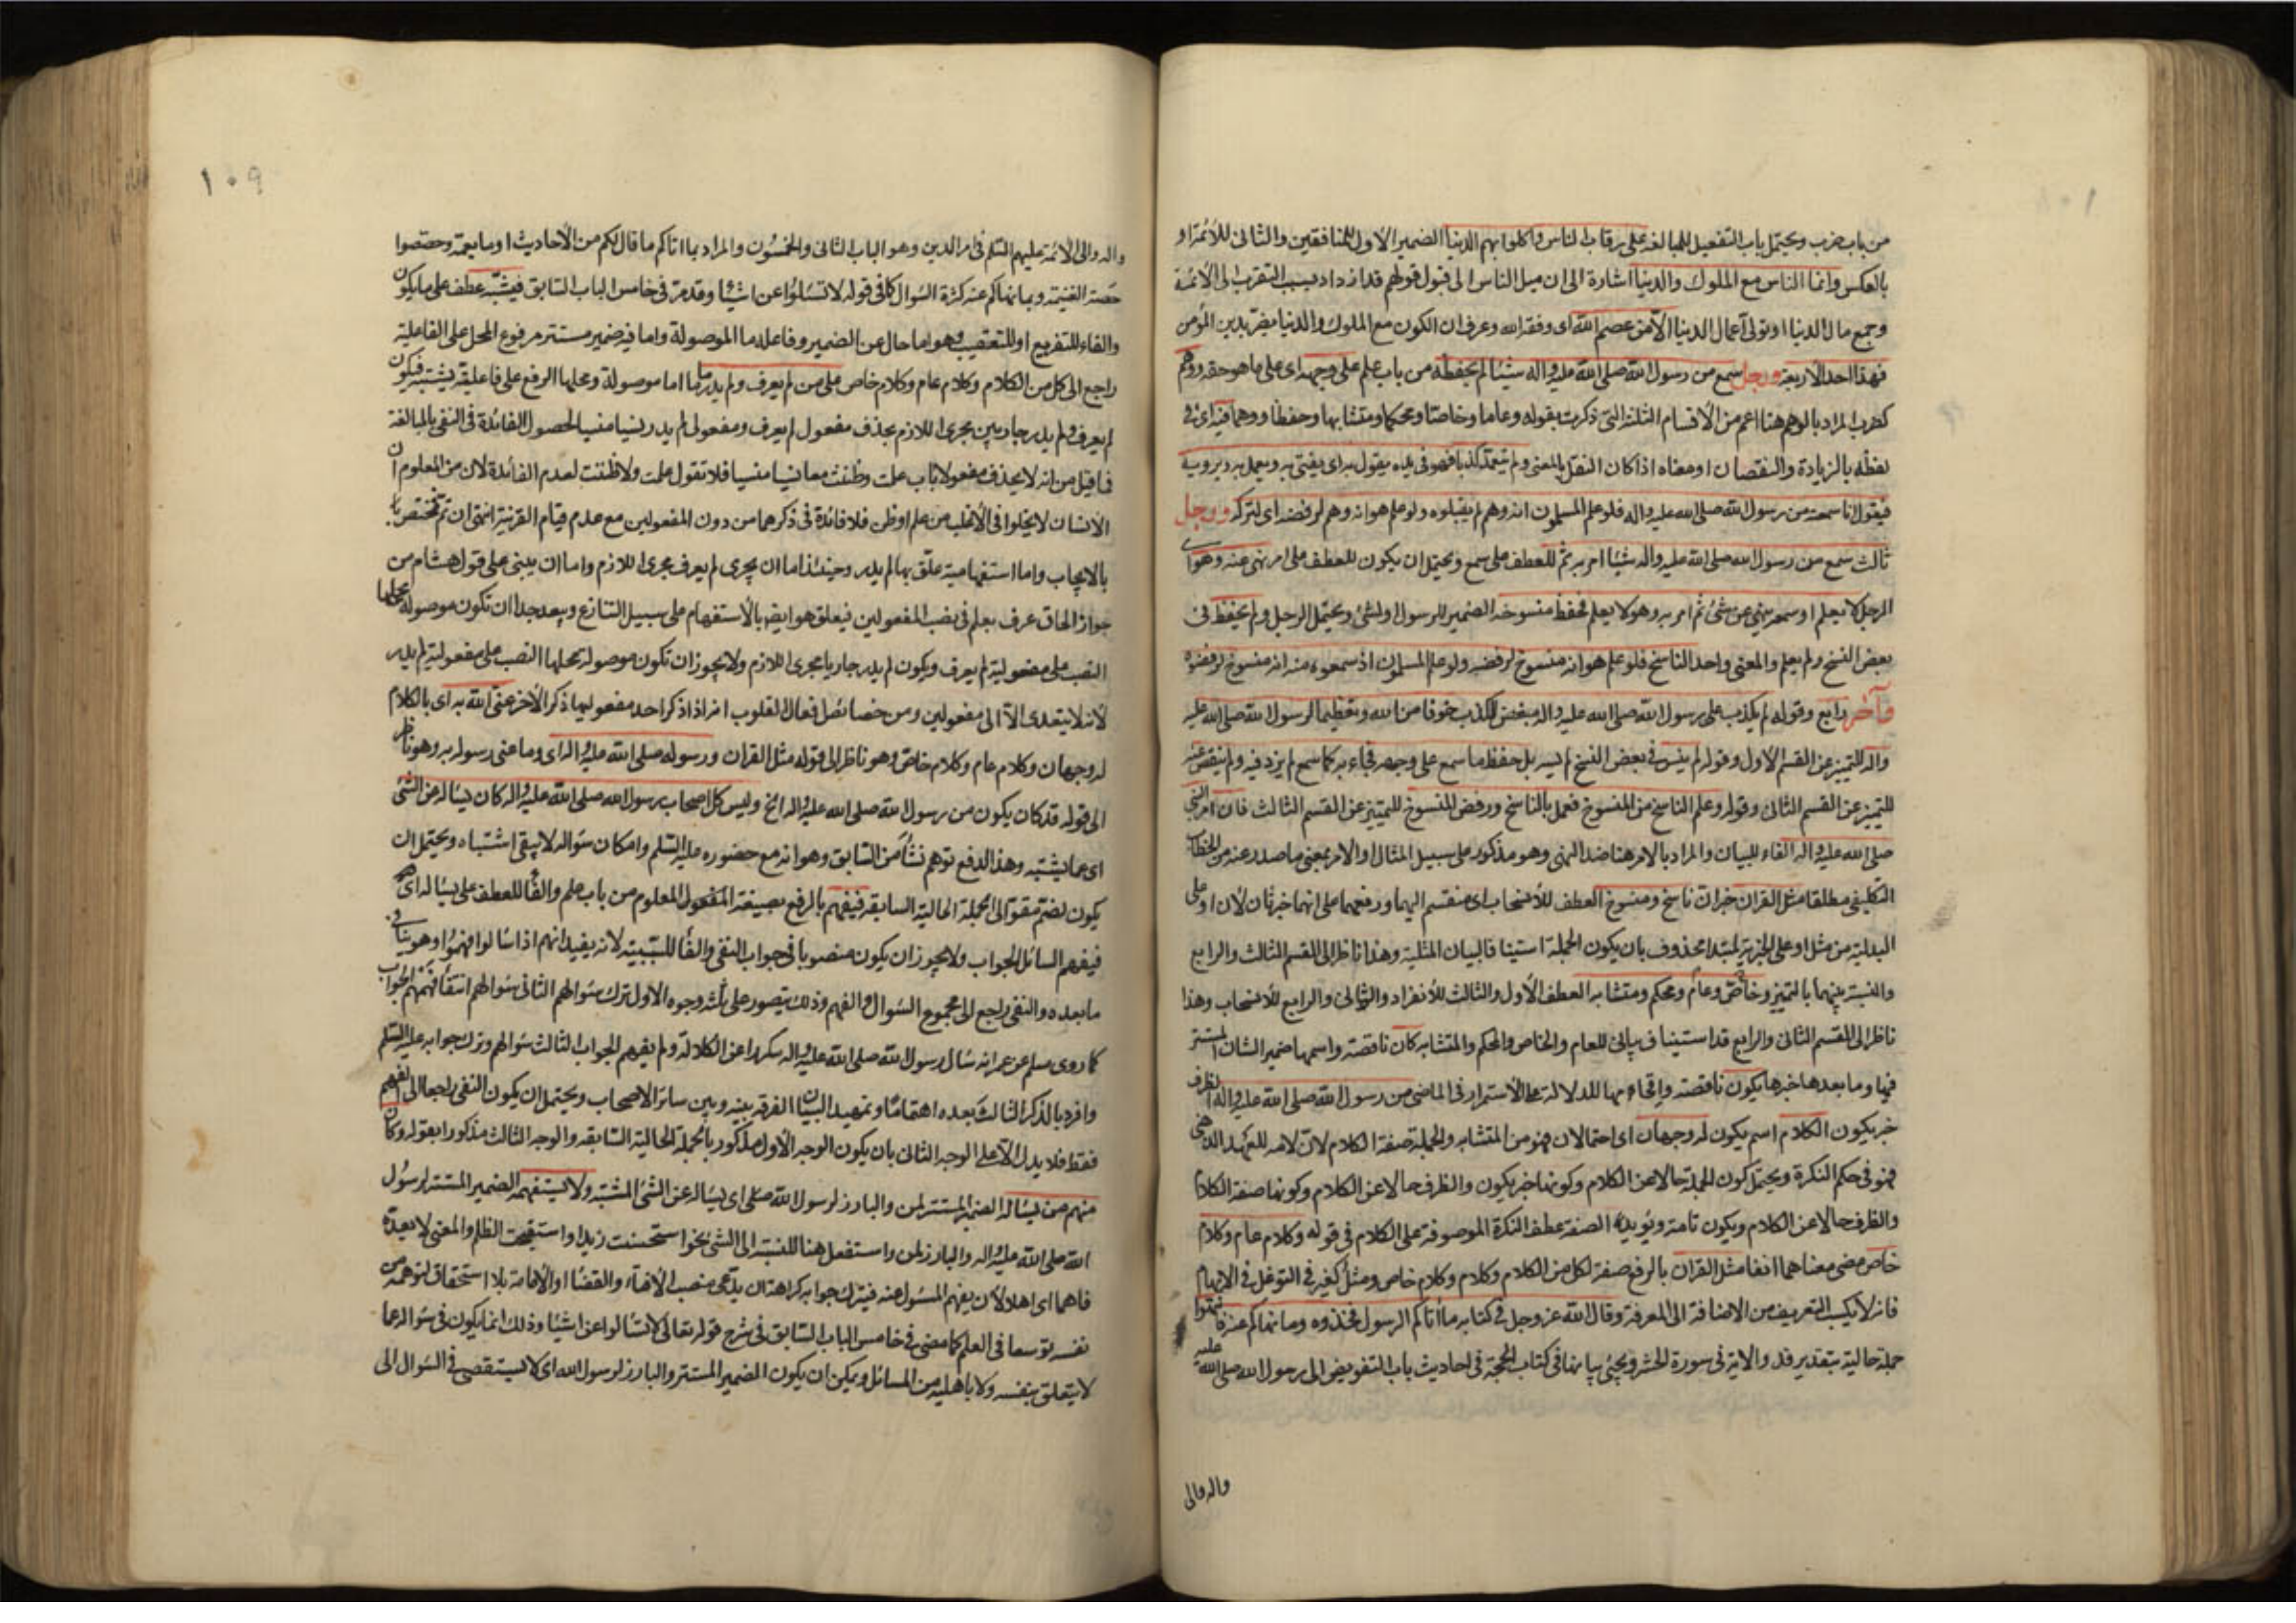 من باب ضرب ويحتمل باب التفعيل للمبالغة على رقاب الناس واكلوا بهم الدنيا الضمير الاول للمنافقين والثاني للأئمة او
بالعكس وانما الناس مع الملوك والدنيا اشارة الى ان ميل الناس الى قبول قولهم قد ازداد بسبب التقرب الى الأئمة
وجمع مال الدنيا او تولى أعمال الدنيا الا من عصم الله اى وفقه الله وعرف ان الكون مع الملوك والدنيا يضر بدين المؤمن
فهذا احد الاربعة ورجل سمع من رسول الله صلى الله عليه واله شيئا لم يحفظه من باب علم على وجهه اى على ما هو حقه ووهم
كضرب المراد بالوهم هنا اعم من الأقسام الثلثة التى ذكرت بقوله وعاما وخاصا ومحكما ومتشابها وحفظا ووهما فيه اى فى
لفظه بالزيادة والنقصان او معناه اذا كان النقل بالمعنى ولم يتعمد كذبا فهو فى يده يقول به اى يفتى به ويعمل به ويرويه
فيقول انا سمعته من رسول الله صلى الله عليه واله فلو علم المسلمون انه وهم لم يقبلوه ولو علم هو انه وهم لرفضه اى لتركه ورجل
ثالث سمع من رسول الله صلى الله عليه واله شيئا امر به ثم للعطف على سمع ويحتمل ان يكون للعطف على امر نهى عنه وهو اى
الرجل لا يعلم او سمعه ينهى عن شئ ثم امر به وهو لا يعلم فحفظ منسوخه الضمير للرسول او لشئ ويحتمل الرجل ولم يحفظ فى
بعض النسخ ولم يعلم والمعنى واحد الناسخ فلو علم هو انه منسوخ لرفضه ولو علم المسلمون اذ سمعوه منه انه منسوخ لرفضوه
وآخر رابع وقوله لم يكذب على رسول الله صلى الله عليه واله مبغض للكذب خوفا من الله وتعظيما لرسول الله صلى الله عليه
واله للتمييز عن القسم الاول وقوله لم ينس فى بعض النسخ لم يسه بل حفظ ما سمع على وجهه فجاء به كما سمع لم يزد فيه ولم ينقص عنه
للتمييز عن القسم الثانى وقوله وعلم الناسخ من المنسوخ فعمل بالناسخ ورفض المنسوخ للتمييز عن القسم الثالث فان امر النبى
صلى الله عليه واله الفاء للبيان والمراد بالامر هنا ضد النهى وهو مذكور على سبيل المثال او الامر بمعنى ما صدر عنه من الخطاب
التكليفى مطلقا مثل القران خبران ناسخ ومنسوخ العطف للأنسحاب اى منقسم اليهما ورفعهما على انهما خبر ثان لأن او على
البدلية من مثل او على الخبرية لمبتدا محذوف بان يكون الجملة استينافا لبيان المثلية وهذا ناظر الى القسم الثالث والرابع
والنسبة بينهما بالتمييز وخاص وعام ومحكم ومتشابه العطف الأول والثالث للأنفراد والثانى والرابع للأنسحاب وهذا
ناظر الى القسم الثانى والرابع قد استيناف بيانى للعام والخاص والمحكم والمتشابه كان ناقصة واسمها ضمير الشان المستتر
فيها وما بعدها خبرها يكون ناقصة واقحامها للدلالة على الأستمرار فى الماضى من رسول الله صلى الله عليه واله الظرف
خبر يكون الكلام اسم يكون له وجهان اى احتمالان فهو من المتشابه والجملة صفة الكلام لان لامه للعهد الذهنى
فهو فى حكم النكرة ويحتمل كون الجملة حالا عن الكلام وكونها خبر يكون والظرف حالا عن الكلام وكونها صفة الكلام
والظرف حالا عن الكلام ويكون تامة ويؤيد الصفة عطف النكرة الموصوفة على الكلام فى قوله وكلام عام وكلام
خاص مضى معناهما انفا مثل القران بالرفع صفة لكل من الكلام وكلام وكلام خاص ومثل كغير فى التوغل فى الابهام
فانه لا يكسب التعريف من الاضافة الى المعرفة وقال الله عز وجل فى كتابه ما أتاكم الرسول فخذوه وما نهاكم عنه فانتهوا
جملة حالية بتقدير قد والاية فى سورة الحشر ويجئ بيانها فى كتاب الحجة فى احاديث باب التفويض الى رسول الله صلى الله عليه
واله والى
١٠٩
واله والى الأئمة عليهم السلم فى امر الدين وهو الباب الثانى والخمسون والمراد بما اتاكم ما قال لكم من الأحاديث او ما يعمه وحصة
حصة الغنيمة وبما نهاكم عنه كثرة السوال كما فى قوله لا تسئلوا عن اشياء وقد مر فى خامس الباب السابق فيشتبه عطف على ما يكون
والفاء للتفريع او للتعقيب وهو اما حال عن الضمير وفاعله ما الموصولة واما فيه ضمير مستتر مرفوع المحل على الفاعلية
راجع الى كل من الكلام وكلام عام وكلام خاص على من لم يعرف ولم يدر ما اما موصولة ومحلها الرفع على فاعلية يشتبه فيكون
لم يعرف ولم يدر جاريين مجرى اللازم بحذف مفعول لم يعرف ومفعولى لم يدر نسيا منسيا لحصول الفائدة فى النفى بالمبالغة
فما قيل من انه لا يحذف مفعولا باب علمت وظننت معا نسيا منسيا فلا تقول علمت ولا ظننت لعدم الفائدة لان من المعلوم ان
الانسان لا يخلوا فى الأغلب من علم او ظن فلا فائدة فى ذكرهما من دون المفعولين مع عدم قيام القرينة انتهى ان تم تختص
بالايجاب واما استفهامية علق بها لم يدر وحينئذ اما ان يجرى لم يعرف مجرى اللازم واما ان يبنى على قول هشام من
جواز الحاق عرف بعلم فى نصب المفعولين فيعلق هو ايضا بالأستفهام على سبيل التنازع ويبعد جدا ان تكون موصولة محلها
النصب على مفعولية لم يعرف ويكون لم يدر جاريا مجرى اللازم ولا يجوز ان تكون موصولة محلها النصب على مفعولية لم يدر
لأنه لا يتعدى الا الى مفعولين ومن خصائص افعال القلوب انه اذا ذكر احد مفعوليها ذكر الأخر عنى الله به اى بالكلام
له وجهان وكلام عام وكلام خاص وهو ناظر الى قوله مثل القران ورسوله صلى الله عليه واله اى وما عنى رسوله به وهو ناظر
الى قوله قد كان يكون من رسول الله صلى الله عليه واله الخ وليس كل اصحاب رسول الله صلى الله عليه واله كان يساله عن الشئ
اى عما يشتبه وهذا الدفع توهم نشأ من السابق وهو انه مع حضوره عليه السلم وامكان سؤاله لا يبقى اشتباه ويحتمل ان
يكون لضم مقو الى الجملة الحالية السابقة فيفهم بالرفع بصيغة المعلوم من باب علم والفا للعطف على يساله اى
فيفهم السائل الجواب ولا يجوز ان يكون منصوبا فى جواب النفى والفا للسببية لانه يفيد انهم اذا سالوا فهموا وهو ينافى
ما بعده والنفى راجع الى مجموع السؤال والفهم وذلك يتصور على ثلثة وجوه الاول ترك سؤالهم الثانى سؤالهم انتفا فهمهم الجواب
كما روى مسلم عن عمر انه سال رسول الله صلى الله عليه واله مكررا عن الكلالة ولم يفهم الجواب الثالث سؤالهم وترك جوابه عليه السلم
وافرد بالذكر الثالث بعده اهتماما وتمهيد البيان الفرق بينه وبين سائر الاصحاب ويحتمل ان يكون النفى راجعا الى الفهم
فقط فلا يدل الا على الوجه الثانى بان يكون الوجه الأول مذكورا بالجملة الحالية السابقة والوجه الثالث مذكورا بقوله وكان
منهم من يساله الضمير المستتر لمن والبارز لرسول الله صلى اى يساله عن الشئ المشتبه ولا يستفهمه الضمير المستتر لرسول
الله صلى الله عليه واله والبارز لمن واستفعل هنا للنسبة الى الشئ نحو استحسنت زيدا واستقبحت الظلم والمعنى لا يعده
فاهما اى اهلا لأن يفهم المسئول عنه فيترك جوابه كراهة ان يدعى منصب الافتاء والقضا او الامامة بلا استحقاق لتوهمه من
نفسه توسعا فى العلم كما مضى فى خامس الباب السابق فى شرح قوله تعالى لا تسالوا عن اشيا وذلك انما يكون فى سؤاله عما
لا يتعلق بنفسه ولا باهليه من المسائل ويمكن ان يكون الضمير المستتر والبارز لرسول الله اى لا يستقصى فى السؤال الى